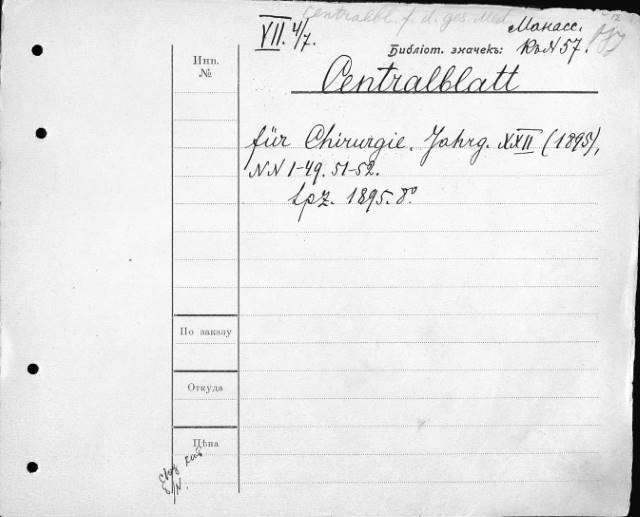 Centralbl. f. d. ges. Med.
VII. 4/7.
Манасс.
Библіот. значекъ: № 57.
Инв.
№
Centralblatt
für Chirurgie. Jahrg. XXII (1895),
NN 1-49. 51-52.
Lpz. 1895. 8º.
По заказу
Откуда
Цѣна